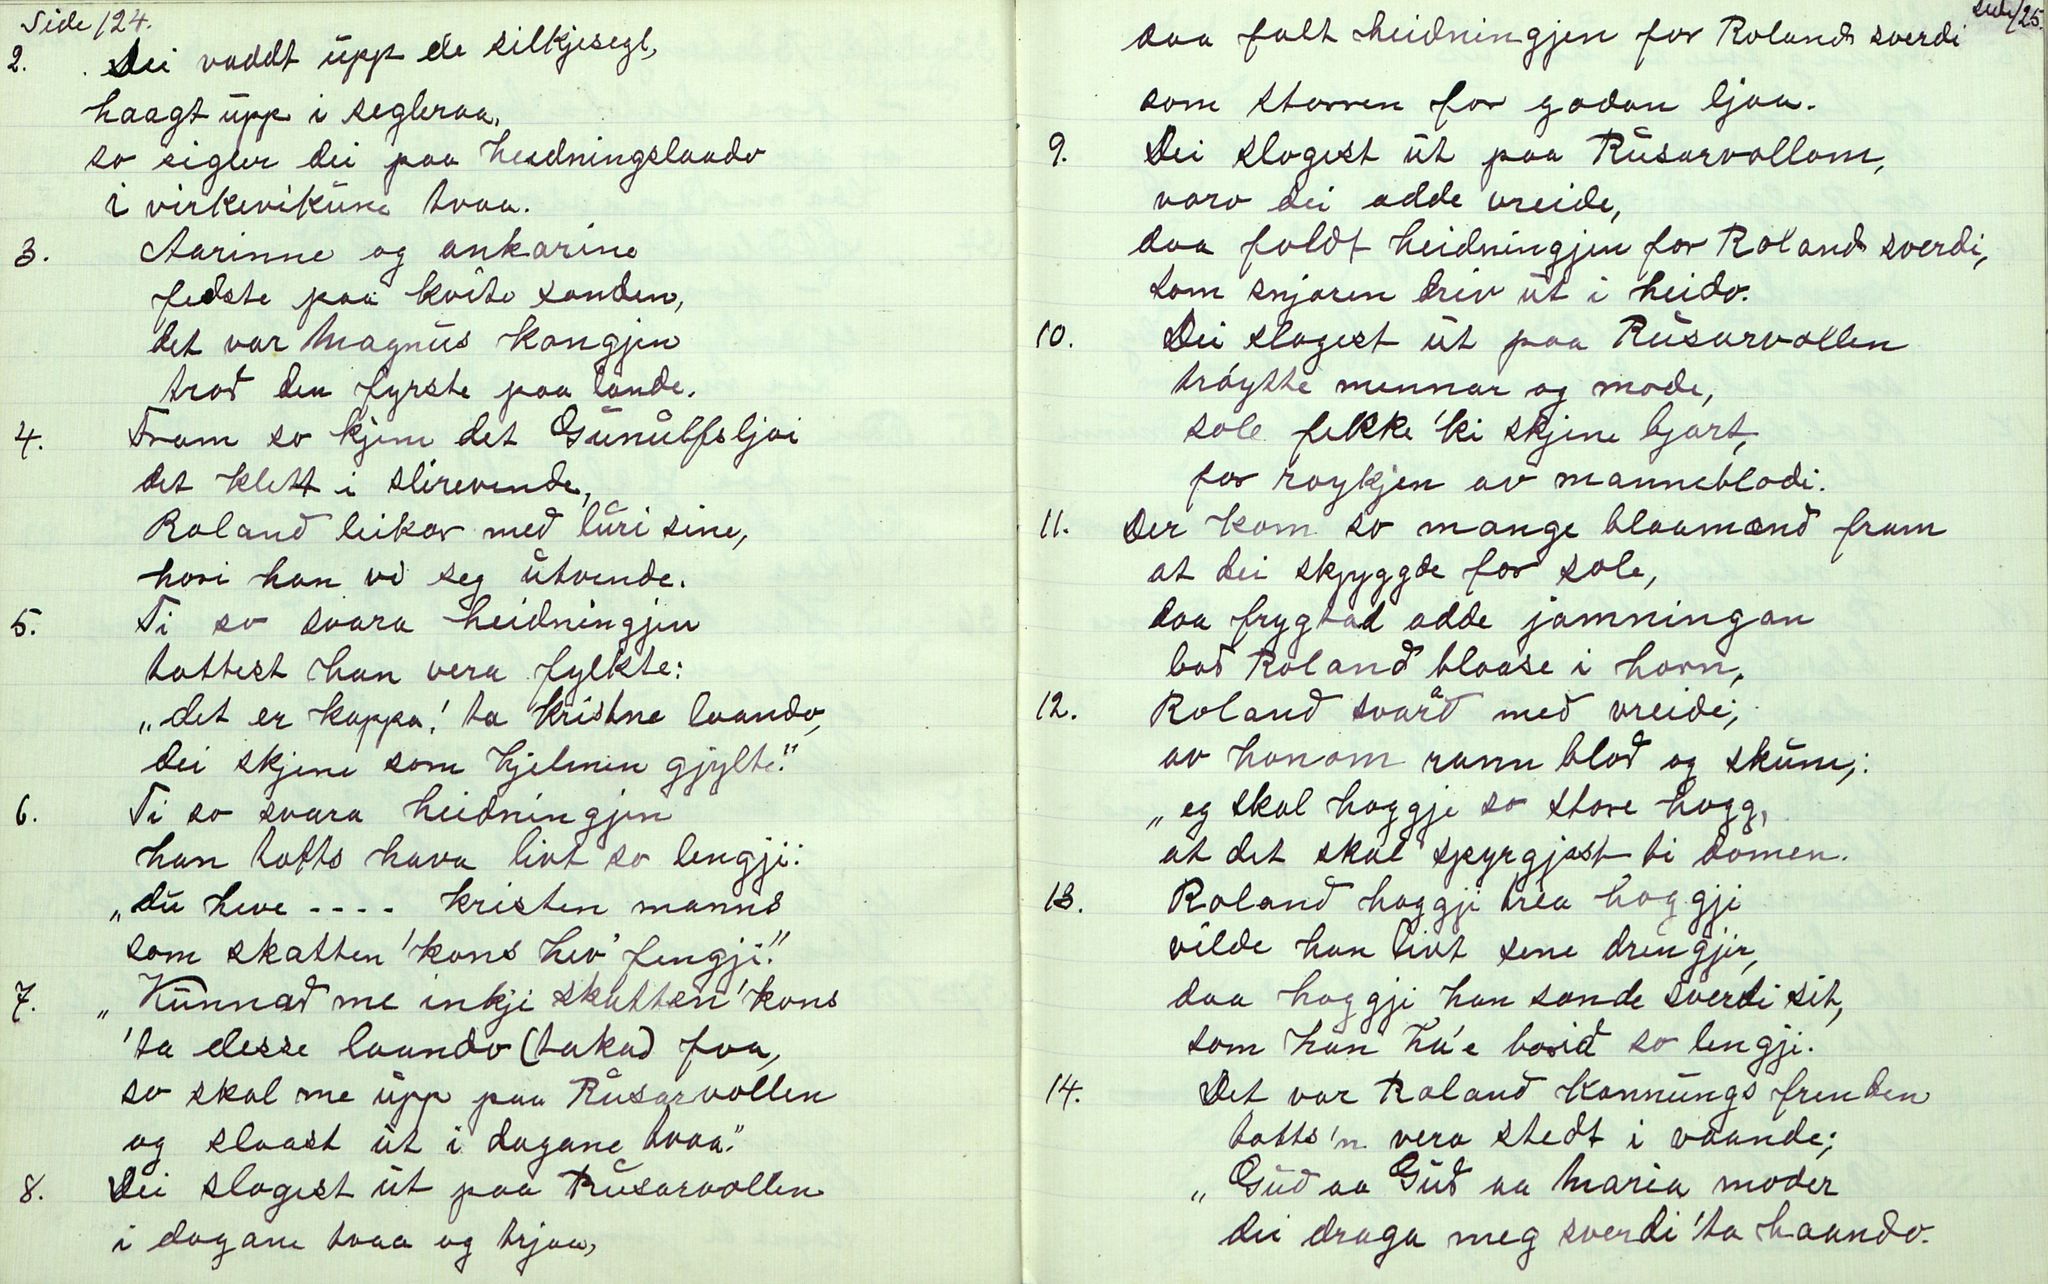 Side 124.
2. Dei vaddt upp de silkjesegl,
haagt upp i segleraa,
so sigler dei paa heidningslaado
i virkevikune tvaa.
3. Aarinne og ankarine
fedste paa kvite sanden,
det var Magnus kongjen
trod den fyrste paa lande.
4. Fram so kjem det Gunulfsljoi
det klett i slirevende,
Roland leikar med luri sine,
hori han vi seg utvende.
5. Ti so svara heidningjen
tottest han vera fylkte:
„det er kappa! ta kristne laando,
dei skjene som hjelmen gjylte."
6. Ti so svara heidningjen
han totts hava livt so lengji:
„du heve - - - - kristen manns
som skatten 'kons hev' fengji."
7. „Kunnad me inkji skatten 'kons
'ta desse laando (taka) faa,
so skal me upp paa Rusarvollen
og slaast ut i dagane tvaa."
8. Dei slogest ut paa Rusarvollen
i dagane tvaa og trjaa,
side 125.
daa falt heidningjen for Rolands sverdi
som storren for godan ljaa.
9. Dei slogest ut paa Rusarvollom,
varo dei adde vreide,
daa foldt heidningjen for Rolands sverdi,
som snjoren driv ut i heido.
10. Dei slogest ut paa Rusarvollen
tróytte mennar og mode,
sole fekke 'ki skjine bjart,
for roykjen av manneblodi.
11. Der kom so mange blaamænd fram
at dei skjyggde for sole,
daa frygtad adde jamningan
bad Roland blaase i horn,
12. Roland svård med vreidi,
av honom rann blod og skum,:
„eg skal hoggje so store hogg,
at det skal spyrgjast ti domen.
13. Roland hoggji trea hoggji
vilde han livt sene drengjir,
daa hoggji han sonde sverdi sit,
som han há'e borid so lengji.
14. Det var Roland Konnungs frenden
totts'n vera stedt i vaande;
„Gud aa Gud aa Maria moder
dei draga meg sverdi 'ta haando.